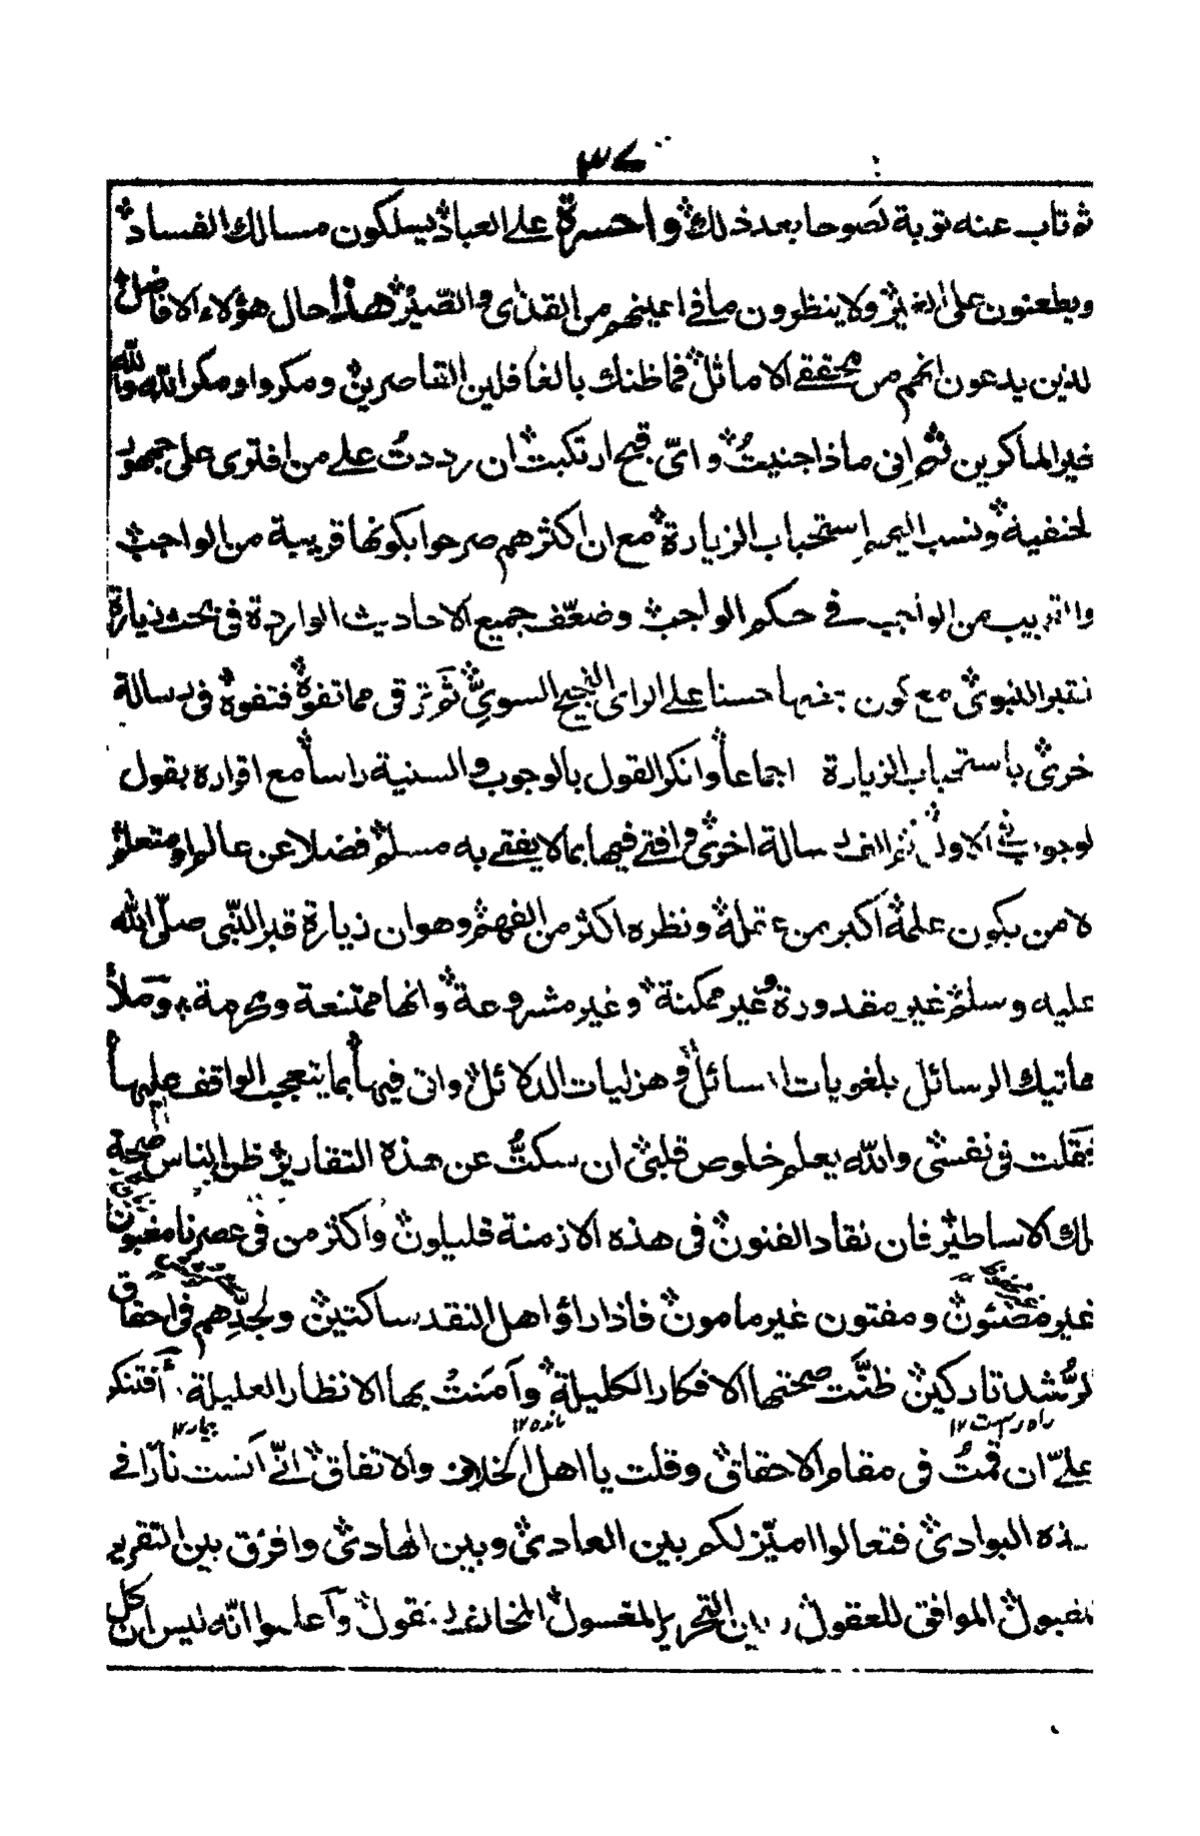 ٣٧
ثم تاب عنه توبة نَصوحا بعد ذلك واحسرة على العباد يسلكون مسالك الفساد
ويطعنون على الغير ولا ينظرون ما في اعينهم من القذى والضير هذا حال هؤلاء الافاضل
لذين يدعون انهم من محققے الاماثل فما ظنك بالغافلين القاصرين ومكروا ومكر الله والله
خير الماكرين ثم اِنى ماذا جنيتُ واىّ قبيح ارتكبت ان رددتُ على من افترى على جمهور
لحنفية ونسب اليهم استحباب الزيارة مع ان اكثرهم صرحوا بكونها قريبة من الواجب
والقريب من الواجب في حكم الواجب وضعّف جميع الاحاديث الواردة فى بحث زيارة
لقبر النبوى مع كون بعضها حسنا على الراى النجيح السوىّ ثم ترقى مما تفوه فتفوه فى رسالة
خرى باستحباب الزيارة اجماعا وانكر القول بالوجوب والسنية راسا مع اقراره بقول
لوجوب فى الاولى ثم الف رسالة اخرى وافتى فيها بما لا يفتى به مسلم فضلا عن عالم او متعلم
لا من يكون علمه اكبر من عقله ونظره اكثر من الفهم وهو ان زيارة قبر النّبى صلّى الله
عليه وسلم غير مقدورة وغير ممكنة وغير مشروعة وانها ممتنعة ومحرمة وملأ
هاتيك الرسائل بلغويات المسائل وهزليات الدلائل واتى فيها بما يتعجب الواقف عليها
فقلت فى نفسى والله يعلم خلوص قلبى ان سكتُّ عن هذه التقارير ظن الناس صحة
تلك الاساطير فان نقاد الفنون فى هذه الازمنة قليلون واكثر من فى عصرنا مغبون
غير مضنون ومفتون غير مامون فاذا راؤا اهل النقد ساكتين ولجدِّهم فى احقاق
لرُّشد تاركين ظنَّت صحتها الافكار الكليلة وآمنتُ بها الانظار العليلة أفتنكر
راه راست ١٢ مانده ١٢ بيمار ١٢
علىّ ان قمتُ فى مقام الاحقاق وقلت يا اهل الخلاف والاتفاق انّى آنست نارًا فى
هذه البوادى فتعالوا اميّز لكم بين العادى وبين الهادى وافرق بين التقرير
لمقبول الموافق للعقول وبين التحرير المغسول المخالف لمنقول وآعلموا انّه ليس ان كل